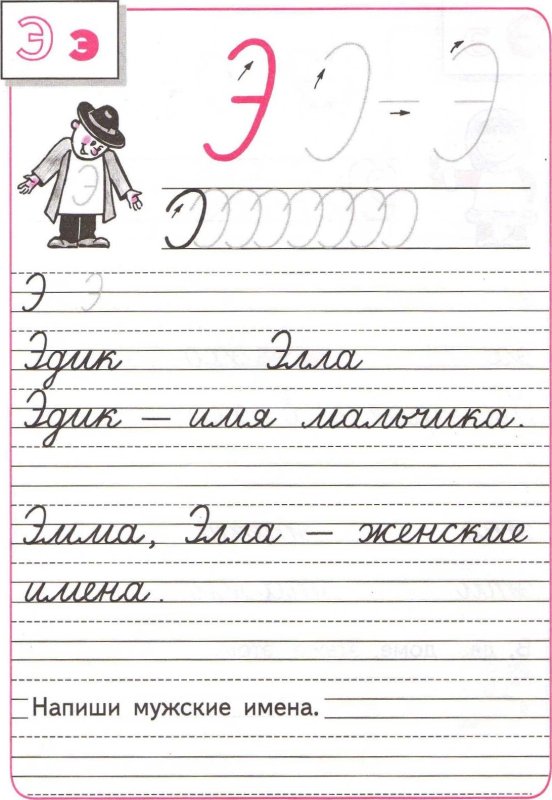 Э э
Э Э Э
Э
Э Э
Эдик Элла
Эдик — имя мальчика.
Эмма, Элла — женские
имена.
Напиши мужские имена.